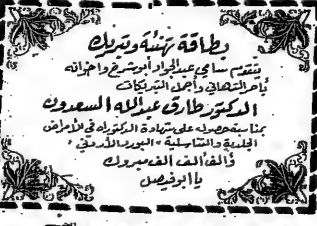 بطاقة تهنئة وتبريك
يتقدم سامي عبد الجواد أبو شرخ واخوانه
بأحر التهاني وأجمل التبريكات
الدكتور طارق عبد الله السعدون
بمناسبة حصوله على شهادة الدكتوراه في الأمراض
الجلدية والتناسلية "البورد الأردني"
فألف ألف ألف مبروك
يا أبو فيصل